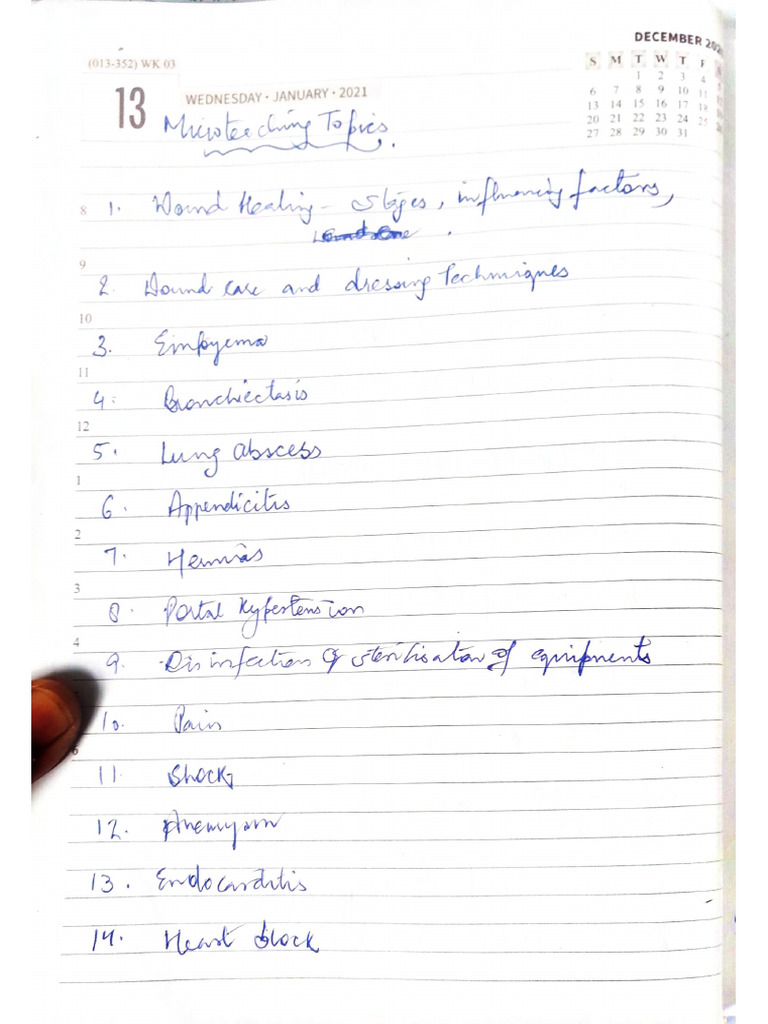 DECEMBER 202
S M T W T F
1 2 3 4
6 7 8 9 10 11
13 14 15 16 17 18
20 21 22 23 24 25
27 28 29 30 31
(013-352) WK 03
13 WEDNESDAY • JANUARY • 2021
Microteaching Topics.
8 1. Wound Healing - stages, influencing factors,
9
2. Wound care and dressing Techniques
10
3. Empyema
11
4. Bronchiectasis
12
5. Lung abscess
1
6. Appendicitis
2
7. Hernias
3
8. Portal Hypertension
4
9. Disinfection & sterilisation of equipments
10. Pain
6
11. Shock
12. Aneurysm
13. Endocarditis
14. Heart block